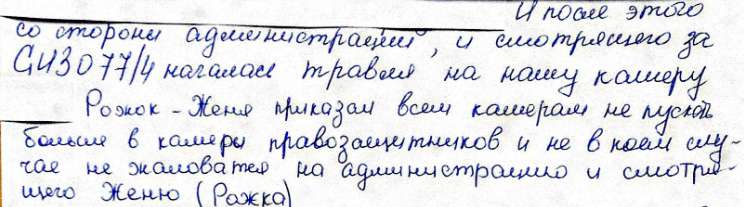 И после этого
со стороны администраций, и смотрящего за
СИЗО77/4 началась травля на нашу камеру
Рожок - Женя приказал всем камерам не пускать
больше в камеры правозащитников и не в коем слу-
чае не жаловатся на администрацию и смотря-
щего Женю (Рожка)